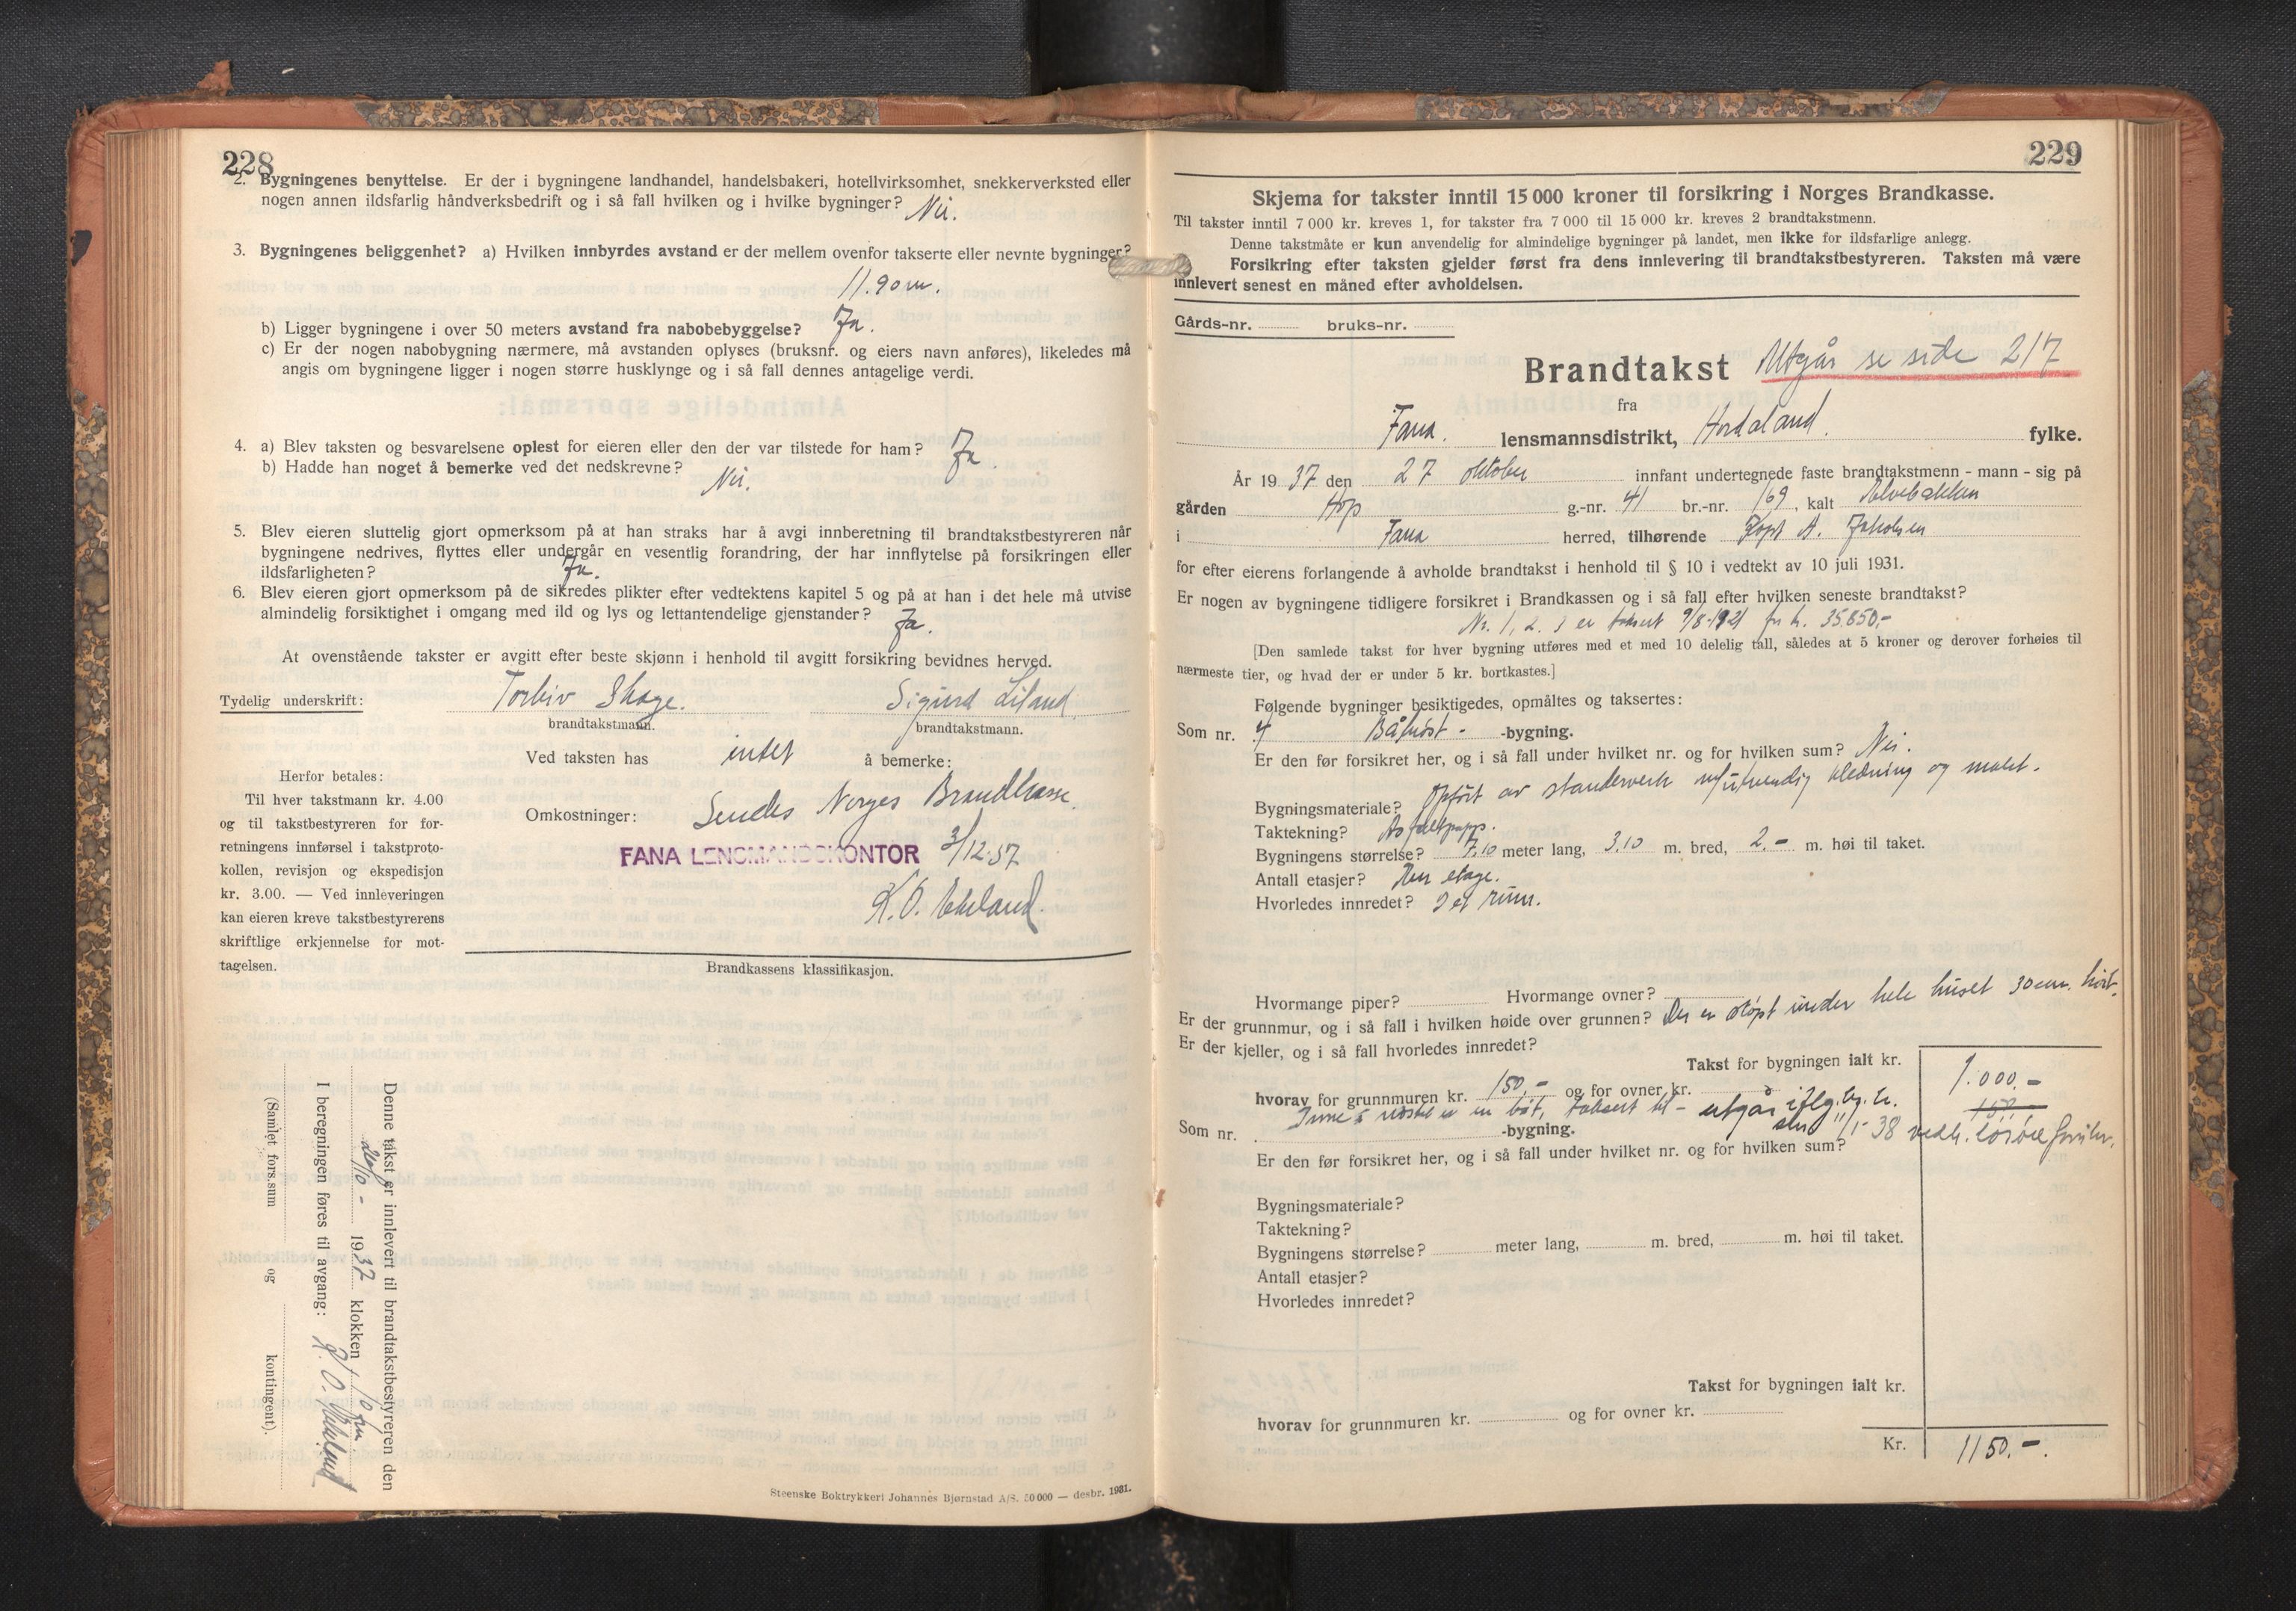 228
2. Bygningenes benyttelse. Er der i bygningene landhandel, handelsbakeri, hotellvirksomhet, snekkerverksted eller
nogen annen ildsfarlig håndverksbedrift og i så fall hvilken og i hvilke bygninger? Nei.
3. Bygningenes beliggenhet? a) Hvilken innbyrdes avstand er der mellem ovenfor takserte eller nevnte bygninger?
11.90 m.
b) Ligger bygningene i over 50 meters avstand fra nabobebyggelse? Ja.
c) Er der nogen nabobygning nærmere, må avstanden oplyses (bruksnr. og eiers navn anføres), likeledes må
angis om bygningene ligger i nogen større husklynge og i så fall dennes antagelige verdi.
4. a) Blev taksten og besvarelsene oplest for eieren eller den der var tilstede for ham? Ja.
b) Hadde han noget å bemerke ved det nedskrevne? Nei.
5. Blev eieren sluttelig gjort opmerksom på at han straks har å avgi innberetning til brandtakstbestyreren når
bygningene nedrives, flyttes eller undergår en vesentlig forandring, der har innflytelse på forsikringen eller
ildsfarligheten? Ja.
6. Blev eieren gjort opmerksom på de sikredes plikter efter vedtektens kapitel 5 og på at han i det hele må utvise
almindelig forsiktighet i omgang med ild og lys og lettantendelige gjenstander? Ja.
At ovenstående takster er avgitt efter beste skjønn i henhold til avgitt forsikring bevidnes herved.
Tydelig underskrift: Torleiv Skage. Sigurd Liland.
brandtakstmann. brandtakstmann.
Ved taksten has intet å bemerke:
Herfor betales:
Til hver takstmann kr. 4.00
og til takstbestyreren for for-
retningens innførsel i takstproto-
kollen, revisjon og ekspedisjon
kr. 3.00. — Ved innleveringen
kan eieren kreve takstbestyrerens
skriftlige erkjennelse for mot-
tagelsen.
Omkostninger: Sendes Norges Brandkasse.
FANA LENSMANDSKONTOR 3/12-37
Brandkassens klassifikasjon.
Denne takst er innlevert til brandtakstbestyreren den
1937 klokken 10 fm
I beregningen føres til avgang:
(Samlet fors.sum og kontingent).
Steenske Boktrykkeri Johannes Bjørnstad A/S. 50 000 — desbr. 1931.
229
Skjema for takster inntil 15 000 kroner til forsikring i Norges Brandkasse.
Til takster inntil 7 000 kr. kreves 1, for takster fra 7 000 til 15 000 kr. kreves 2 brandtakstmenn.
Denne takstmåte er kun anvendelig for almindelige bygninger på landet, men ikke for ildsfarlige anlegg.
Forsikring efter taksten gjelder først fra dens innlevering til brandtakstbestyreren. Taksten må være
innlevert senest en måned efter avholdelsen.
Gårds-nr. bruks-nr.
Brandtakst Utgår se side 217
fra
Fana. lensmannsdistrikt, Hordaland. fylke.
År 1937 den 27 oktober innfant undertegnede faste brandtakstmenn - mann - sig på
gården Hop g.-nr. 41 br.-nr. 169, kalt Alvebakken
i Fana herred, tilhørende Kapt A. Jakobsen
for efter eierens forlangende å avholde brandtakst i henhold til § 10 i vedtekt av 10 juli 1931.
Er nogen av bygningene tidligere forsikret i Brandkassen og i så fall efter hvilken seneste brandtakst?
Nr. 1, 2. 3 er taksert 9/8-1921 for kr. 35.850,-
[Den samlede takst for hver bygning utføres med et med 10 delelig tall, således at 5 kroner og derover forhøies til
nærmeste tier, og hvad der er under 5 kr. bortkastes.]
Følgende bygninger besiktigedes, opmåltes og taksertes:
Som nr. 4 Båtnøst - -bygning.
Er den før forsikret her, og i så fall under hvilket nr. og for hvilken sum? Nei.
Bygningsmateriale? Opført av standerverk m/utvendig kledning og malet.
Taktekning? Asfaltpapp.
Bygningens størrelse? 7.10 meter lang, 3.10 m. bred, 2.- m. høi til taket.
Antall etasjer? Een etage.
Hvorledes innredet? I et rum.
Hvormange piper? Hvormange ovner?
Er der grunnmur, og i så fall i hvilken høide over grunnen? Der er støpt under hele huset 30 cm. høit.
Er der kjeller, og i så fall hvorledes innredet?
Takst for bygningen ialt kr. 1.000.-
hvorav for grunnmuren kr. 150.- og for ovner kr.
Inne i nøstet er en båt, taksert til - utgår iflg. 150.-
Som nr. -bygning. 11/1-38 vedk. løsøre
Er den før forsikret her, og i så fall under hvilket nr. og for hvilken sum?
Bygningsmateriale?
Taktekning?
Bygningens størrelse? meter lang, m. bred, m. høi til taket.
Antall etasjer?
Hvorledes innredet?
Takst for bygningen ialt kr.
hvorav for grunnmuren kr. og for ovner kr.
Kr. 1150.-.